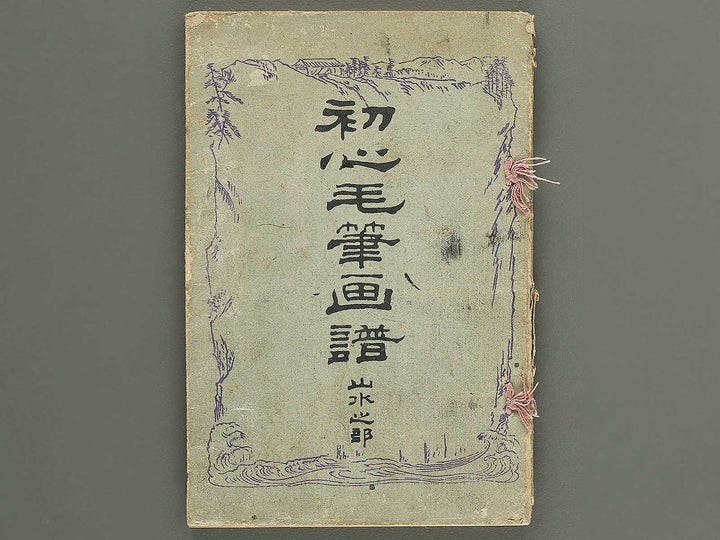 初心毛筆画譜
山水之部